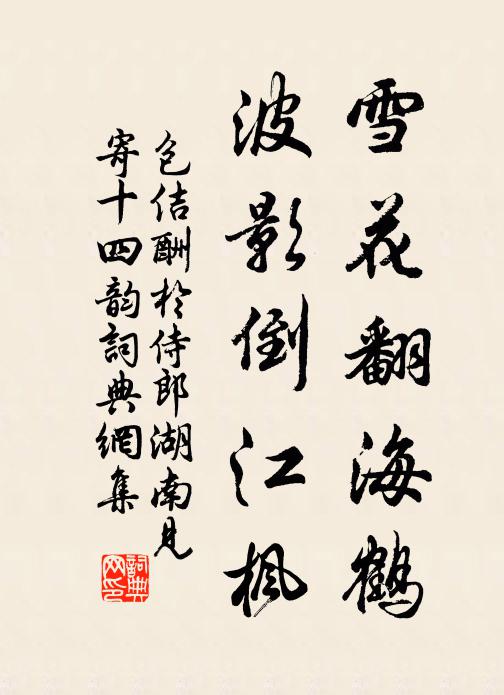 雪花翻海鶴
波影倒江楓
包佶酬於侍郎湖南見
寄十四韵詞典網集
詞典网印